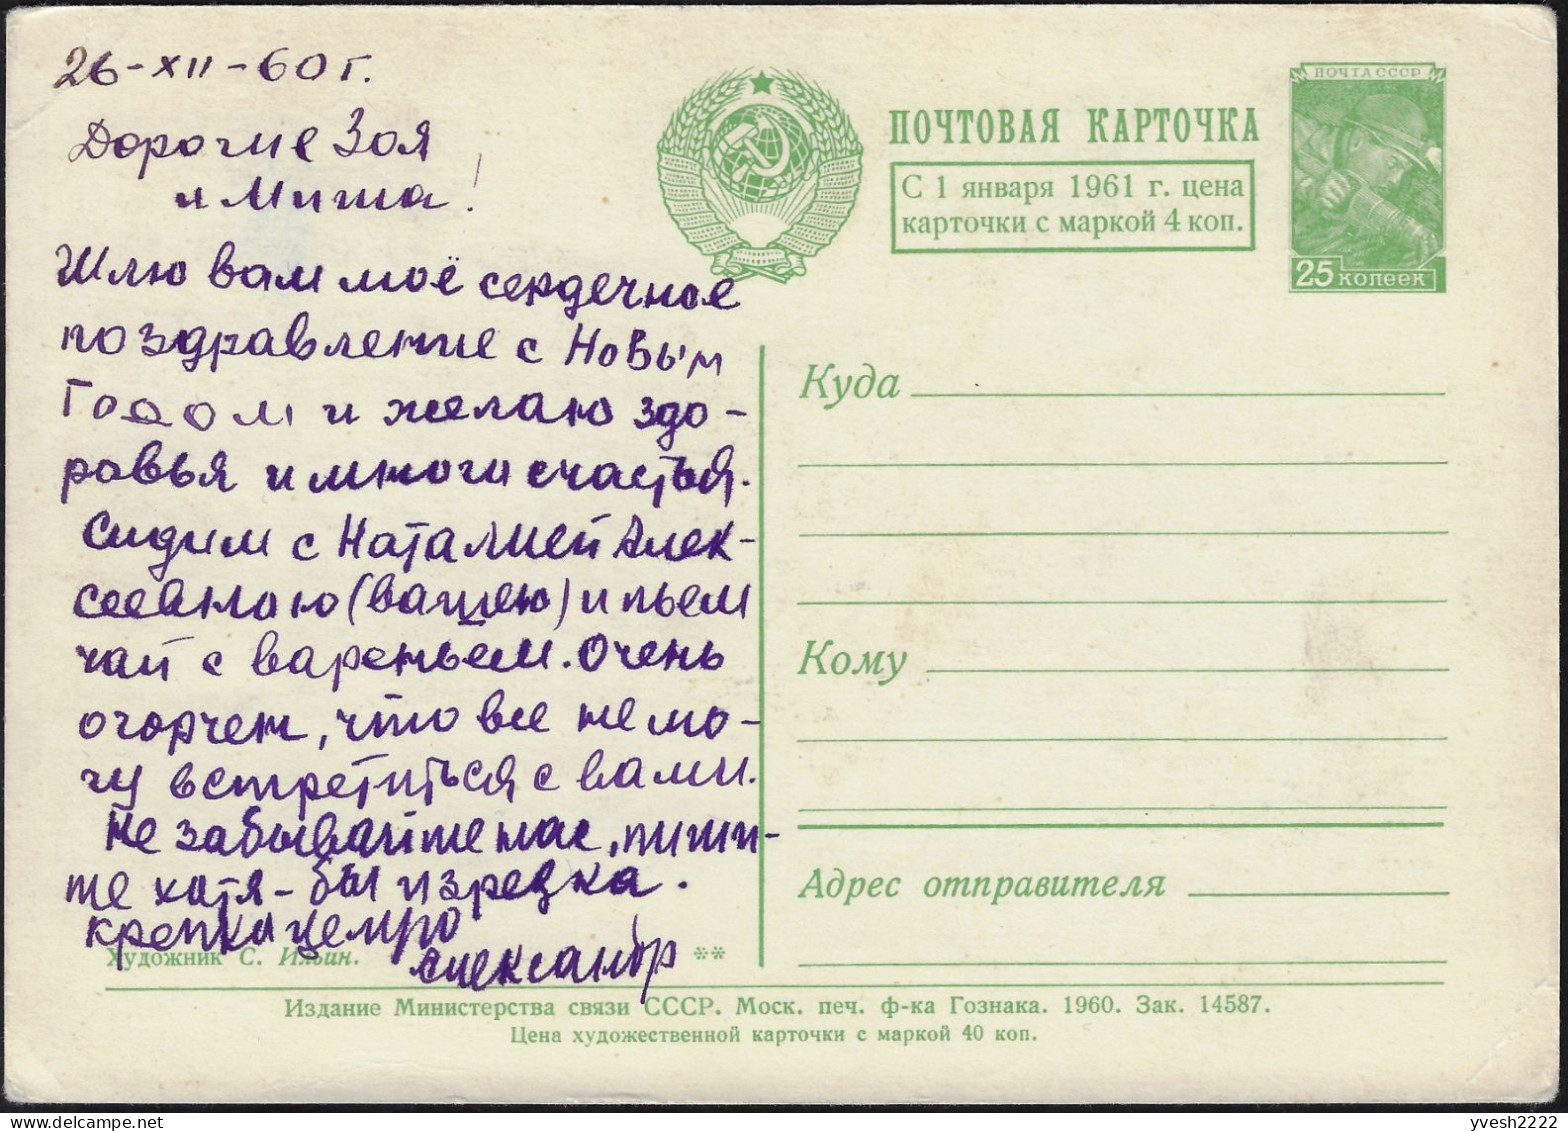 26-XII-60 г.
Дорогие Зоя
и Миша!
Шлю вам моё сердечное
поздравление с Новым
Годом и желаю здо-
ровья и много счастья.
Сидим с Наталией Алек-
сеевною (вашею) и пьем
чай с вареньем. Очень
огорчен, что все не мо-
гу встретиться с вами.
Не забывайте нас, пиши-
те хотя-бы изредка.
Крепко целую
Александр
Художник С. Ильин.
**
ПОЧТОВАЯ КАРТОЧКА
С 1 января 1961 г. цена
карточки с маркой 4 коп.
ПОЧТА СССР
25 КОПЕЕК
Куда
Кому
Адрес отправителя
Издание Министерства связи СССР. Моск. печ. ф-ка Гознака. 1960. Зак. 14587.
Цена художественной карточки с маркой 40 коп.
yvesh2222